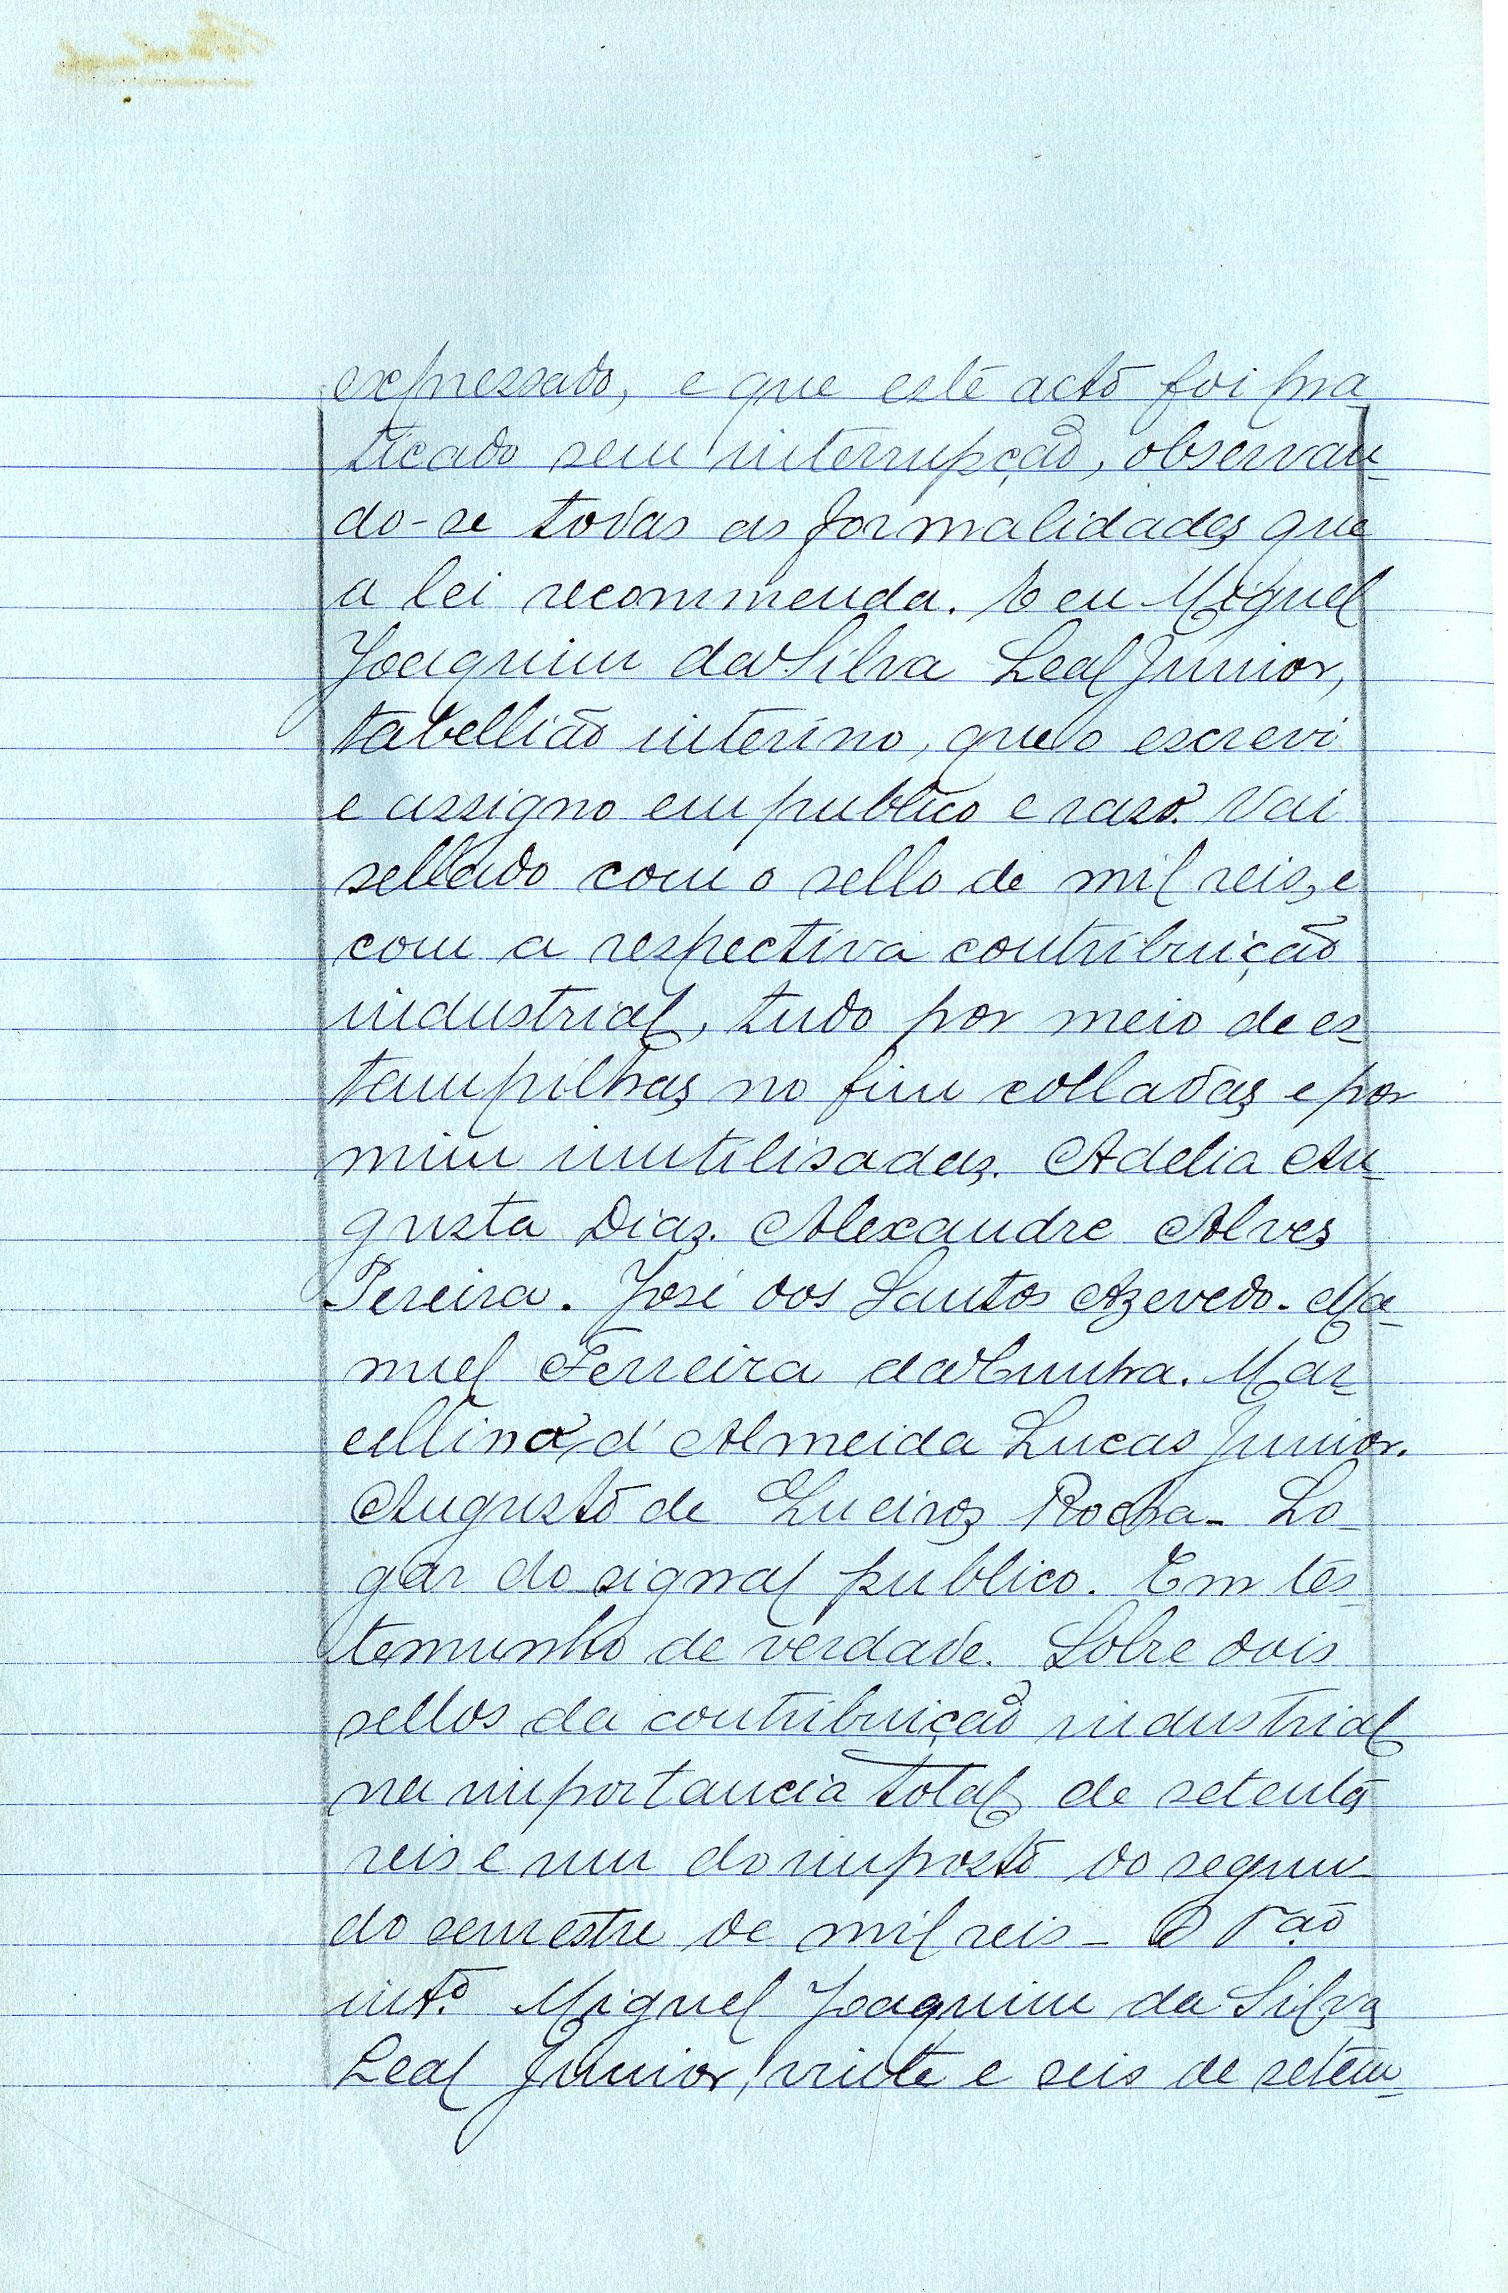 expressado, e que este acto foi pra
ticado sem interrupção, observan-
do-se todas as formalidades que
a lei recommenda. E eu Miguel
Joaquim da Silva Leal Junior,
tabellião interino, que o escrevi
e assigno em publico e raso. Vai
sellado com o sello de mil reis, e
com a respectiva contribuição
industrial, tudo por meio de es-
tampilhas no fim colladas e por
mim inutilisadas. Adelia Au-
gusta Dias. Alexandre Alves
Pereira. José dos Santos Azevedo. Ma-
nuel Ferreira da Cunha. Mar-
cellino d'Almeida Lucas Junior.
Augusto de Queiroz Rocha - Lo-
gar do signal publico. Em tes-
temunho de verdade. Sobre dois
sellos da contribuição industrial
na importancia total de setenta
reis e um do imposto do segun-
do semestre de mil reis - O T.ão
int.o Miguel Joaquim da Silva
Leal Junior, vinte e seis de setem-